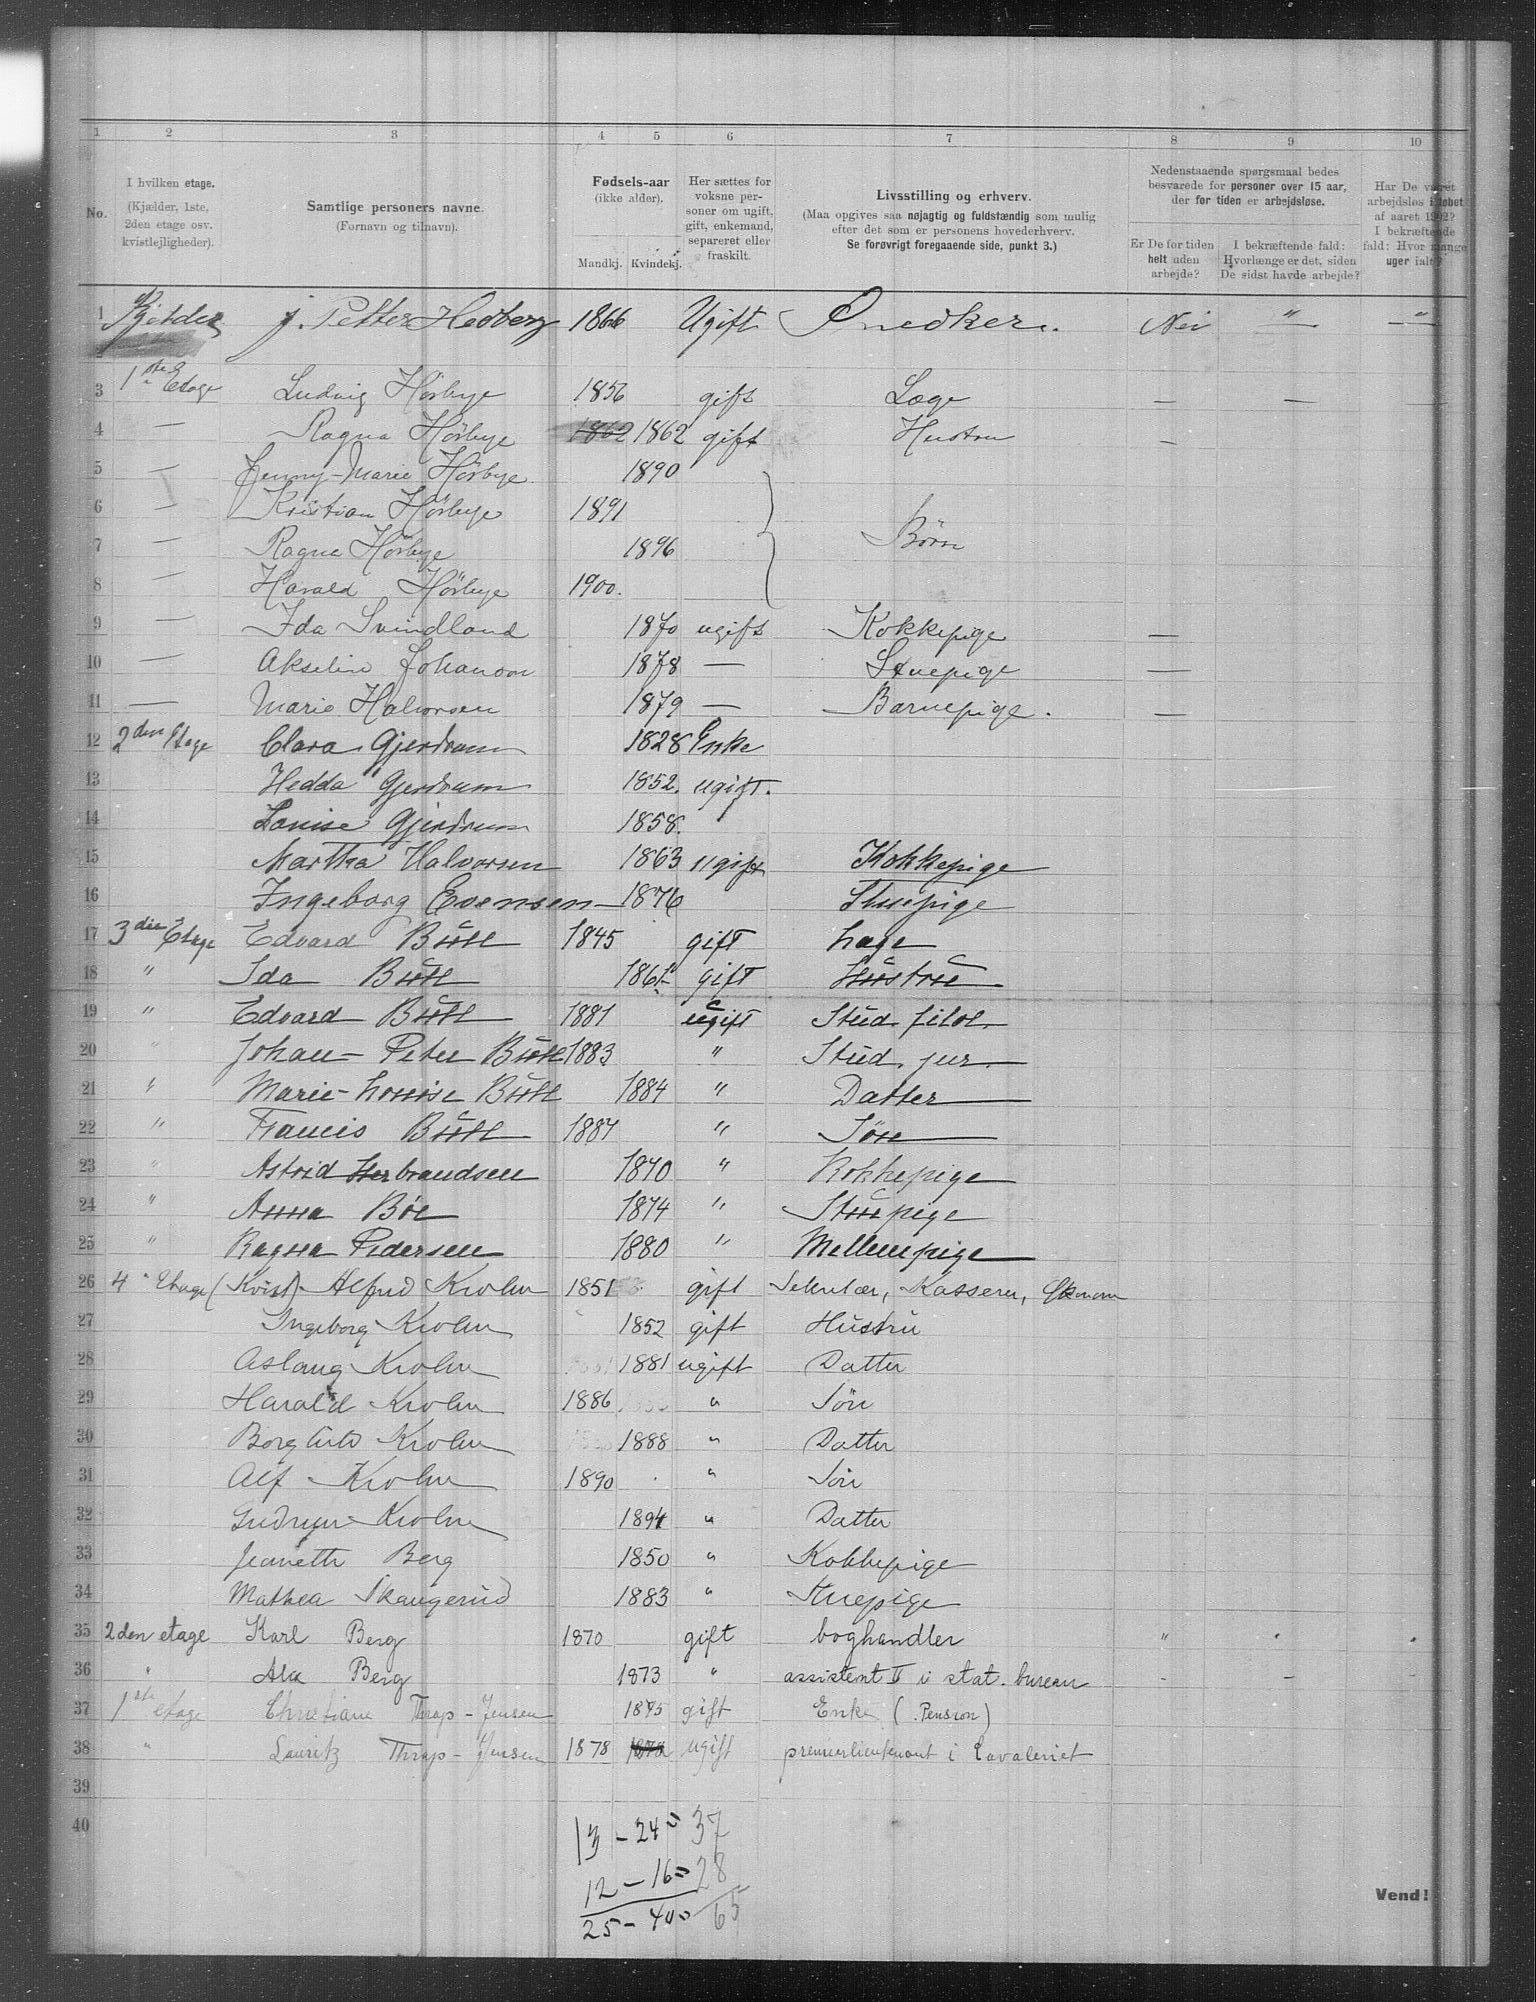 1 2 3 4 5 6 7 8 9 10
No.
I hvilken etage.
(Kjælder, 1ste,
2den etage osv.
kvistlejligheder).
Samtlige personers navne.
(Fornavn og tilnavn).
Fødsels-aar
(ikke alder).
Mandkj. Kvindekj.
Her sættes for
voksne per-
soner om ugift,
gift, enkemand,
separeret eller
fraskilt.
Livsstilling og erhverv.
(Maa opgives saa nøjagtig og fuldstændig som mulig
efter det som er personens hovederhverv.
Se forøvrigt foregaaende side, punkt 3.)
Nedenstaaende spørgsmaal bedes
besvarede for personer over 15 aar,
der for tiden er arbejdsløse.
Er De for tiden
helt uden
arbejde?
I bekræftende fald:
Hvorlænge er det, siden
De sidst havde arbejde?
Har De været
arbejdsløs i løbet
af aaret 1902?
I bekræftende
fald: Hvor mange
uger ialt?
1 Kjelder J. Petter Hedberg 1866 Ugift Snedker. Nei " "
2
3 1ste Etage Ludvig Hörbye 1856 gift Læge — —
4 — Ragna Hörbye 1862 1862 gift Hustru —
5 — Jenny-Marie Hörbye 1890
6 — Kristian Hörbye 1891
7 — Ragna Hörbye 1896 Börn
8 — Harald Hörbye 1900.
9 — Ida Svindland 1870 ugift Kokkepige —
10 — Akseline Johanson 1878 — Stuepige —
11 — Marie Halvorsen 1879 — Barnepige. —
12 2den Etage Clara Gjerdrum 1828 Enke
13 Hedda Gjerdrum 1852. ugift.
14 Louise Gjerdrum 1858.
15 Martha Halvorsen 1863 ugift Kokkepige
16 Ingeborg Evensen — 1876 Stuepige
17 3die Etage Edvard Bull 1845 gift Læge
18 " Ida Bull 1861 gift Hustru
19 " Edvard Bull 1881 ugift Stud. filol.
20 " Johan - Peter Bull 1883 " Stud. jur.
21 " Marie-Louise Bull 1884 " Datter
22 " Francis Bull 1887 " Søn
23 " Astrid Herbrandsen 1870 " Kokkepige
24 " Anna Böe 1874 " Stuepige
25 " Ragna Pedersen 1880 " Mellempige
26 4 Etage (Kvist) Alfred Krohn 1851 gift Sekretær, Kasserer, Økonom
27 Ingeborg Krohn 1852 gift Hustru
28 Aslaug Krohn 1881 ugift Datter
29 Harald Krohn 1886 " Sön
30 Borghild Krohn 1888 " Datter
31 Alf Krohn 1890 " Sön
32 Gudrun Krohn 1894 " Datter
33 Jeanette Berg 1850 " Kokkepige
34 Mathea Skaugerud 1883 " Stuepige
35 2den etage Karl Berg 1870 gift boghandler "
36 " Ala Berg 1873 " assistent II i stat. bureau - -
37 1ste etage Christiane Thrap-Jensen 1845 gift Enke (Pension)
38 " Lauritz Thrap-Jensen 1878 ugift premierlieutenant i Kavaleriet
39
40
13 - 24 = 37
12 - 16 = 28
25 - 40 = 65
Vend!